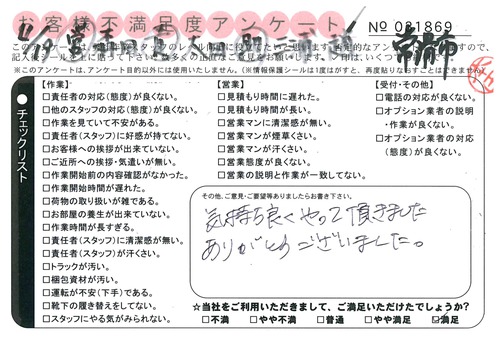 お客様不満足度アンケート
№ 031869
常滑市
※このアンケートは、アンケート目的以外には使用いたしません。(※情報保護シールは1度がはすと、再度貼りなおすことはできません)
チェックリスト
【作業】
□責任者の対応(態度)が良くない。
□他のスタッフの対応(態度)が良くない。
□作業を見ていて不安がある。
□責任者(スタッフ)に好感が持てない。
□お客様への挨拶が出来ていない。
□ご近所への挨拶・気遣いが無い。
□作業開始前の内容確認がなかった。
□作業開始時間が遅れた。
□荷物の取り扱いが雑である。
□お部屋の養生が出来ていない。
□作業時間が長すぎる。
□責任者(スタッフ)に清潔感が無い。
□責任者(スタッフ)が汗くさい。
□トラックが汚い。
□梱包資材が汚い。
□運転が不安(下手)である。
□靴下の履き替えをしてない。
□スタッフにやる気がみられない。
【営業】
□見積もり時間に遅れた。
□見積もり時間が長い。
□営業マンに清潔感が無い。
□営業マンが煙草くさい。
□営業マンが汗くさい。
□営業態度が良くない。
□営業の説明と作業が一致してない。
【受付・その他】
□電話の対応が良くない。
□オプション業者の説明
・作業が良くない。
□オプション業者の対応
(態度)が良くない。
その他、ご意見・ご要望等ありましたらお書き下さい。
気持ち良くやって頂きました
ありがとうございました。
☆当社をご利用いただきまして、ご満足いただけたでしょうか?
□不満 □やや不満 □普通 □やや満足 ☑満足